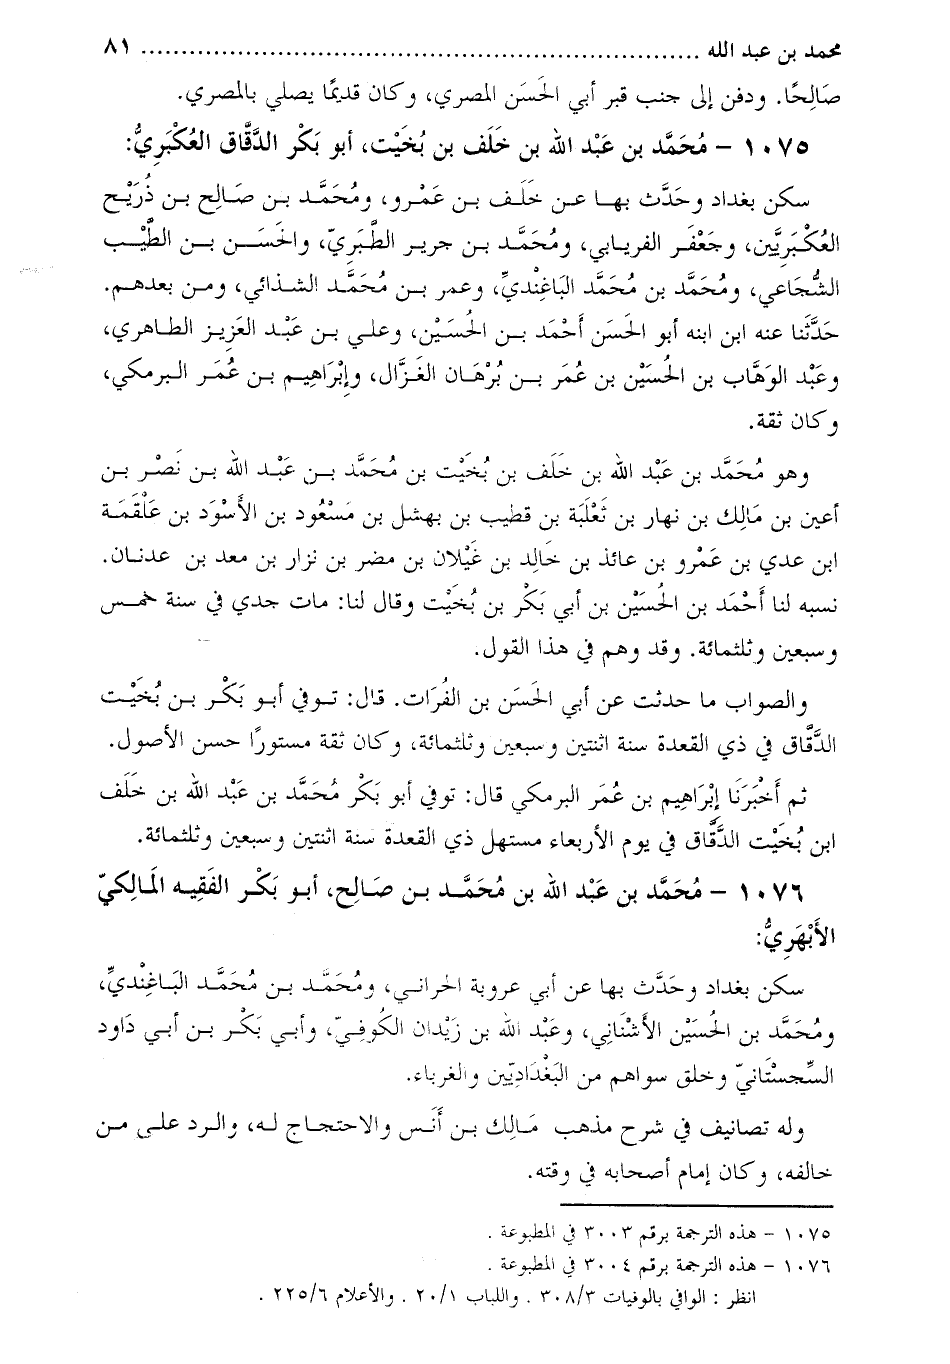 محمد بن عبد الله ..................................................................... ٨١
صَالِحًا. ودفن إلى جنب قبر أبي الحَسَن المصري، وكان قديمًا يصلي بالمصري.
١٠٧٥ – مُحَمَّد بن عَبْد الله بن خَلَف بن بُخَيْت، أبو بَكْر الدَّقَّاق العُكْبَرِيُّ:
سكن بغداد وحَدَّث بها عن خَلَف بن عَمْرو، ومُحَمَّد بن صَالِح بن ذُرَيْح
العُكْبَرِيَّين، وجَعْفَر الفريابي، ومُحَمَّد بن جرير الطَّبَرِيّ، والحَسَن بن الطَّيِّب
الشُّجَاعي، ومُحَمَّد بن مُحَمَّد البَاغِنْدِيِّ، وعمر بن مُحَمَّد الشذائي، ومن بعدهم.
حَدَّثَنَا عنه ابن ابنه أبو الحَسَن أَحْمَد بن الحُسَيْن، وعلي بن عَبْد العَزِيز الطاهري،
وعَبْد الوَهَّاب بن الحُسَيْن بن عُمَر بن بُرْهَان الغَزَّال، وإبْرَاهِيم بن عُمَر البرمكي،
وكان ثقة.
وهو مُحَمَّد بن عَبْد الله بن خَلَف بن بُخَيْت بن مُحَمَّد بن عَبْد الله بن نَصْر بن
أعين بن مَالِك بن نهار بن ثَعْلَبَة بن قطيب بن بهشل بن مَسْعُود بن الأَسْوَد بن عَلْقَمَة
ابن عدي بن عَمْرو بن عائذ بن خَالِد بن غَيْلان بن مضر بن نزار بن معد بن عدنان.
نسبه لنا أَحْمَد بن الحُسَيْن بن أبي بَكْر بن بُخَيْت وقال لنا: مات جدي في سنة خمس
وسبعين وثلثمائة. وقد وهم في هذا القول.
والصواب ما حدثت عن أبي الحَسَن بن الفُرَات. قال: توفي أبو بَكْر بن بُخَيْت
الدَّقَّاق في ذي القعدة سنة اثنتين وسبعين وثلثمائة، وكان ثقة مستورًا حسن الأصول.
ثم أَخْبَرَنَا إبْرَاهِيم بن عُمَر البرمكي قال: توفي أبو بَكْر مُحَمَّد بن عَبْد الله بن خَلَف
ابن بُخَيْت الدَّقَّاق في يوم الأربعاء مستهل ذي القعدة سنة اثنتين وسبعين وثلثمائة.
١٠٧٦ – مُحَمَّد بن عَبْد الله بن مُحَمَّد بن صَالِح، أبو بَكْر الفَقِيه المَالِكيّ
الأَبْهَرِيُّ:
سكن بغداد وحَدَّث بها عن أبي عروبة الحراني، ومُحَمَّد بن مُحَمَّد البَاغِنْدِيِّ،
ومُحَمَّد بن الحُسَيْن الأُشْنَانِي، وعَبْد الله بن زَيْدان الكُوفِيّ، وأبي بَكْر بن أبي دَاود
السِّجِسْتَانيّ وخلق سواهم من البَغْدَادِيّين والغرباء.
وله تصانيف في شرح مذهب مَالِك بن أَنَس والاحتجاج له، والرد على من
خالفه، وكان إمام أصحابه في وقته.
١٠٧٥ – هذه الترجمة برقم ٣٠٠٣ في المطبوعة .
١٠٧٦ – هذه الترجمة برقم ٣٠٠٤ في المطبوعة .
انظر : الوافي بالوفيات ٣٠٨/٣ . واللباب ٢٠/١ . والأعلام ٢٢٥/٦ .